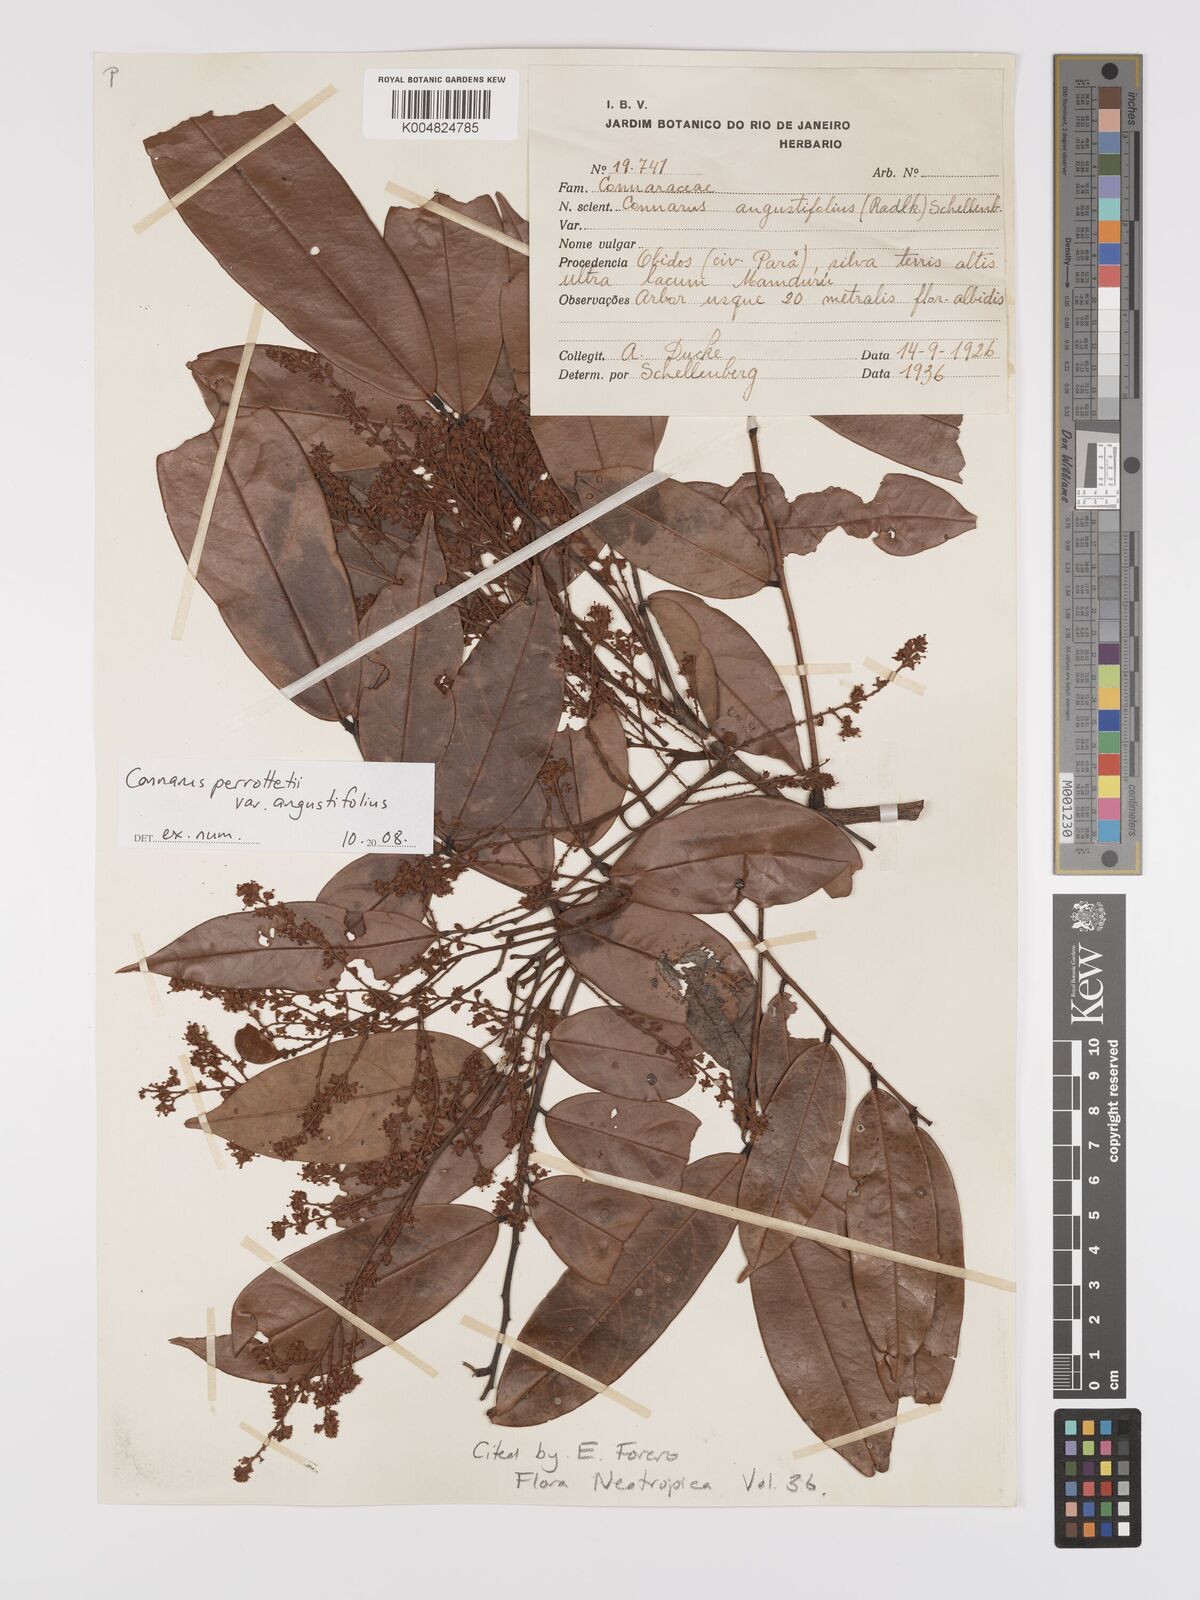 P
ROYAL BOTANIC GARDENS KEW
K004824785
I. B. V.
JARDIM BOTANICO DO RIO DE JANEIRO
HERBARIO
Nº 19.741 Arb. Nº
Fam. Connaraceae
N. scient. Connarus angustifolius (Radlk.) Schellenb.
Var.
Nome vulgar
Procedencia Obidos (civ. Pará), silva terris altis
ultra lacum Mamdurú
Observações Arbor usque 20 metralis flor. albidis
Collegit. A. Ducke Data 14-9-1926
Determ. por Schellenberg Data 1936
Connarus perrottetii
var. angustifolius
DET. ex. num. 10. 20 08.
Cited by E. Forero
Flora Neotropica Vol. 36.
inches
centimetres
Don Williams
M001230
Royal Botanic Gardens
Kew
0 1 2 3 4 5 6 7 8 9 10
cm
copyright reserved